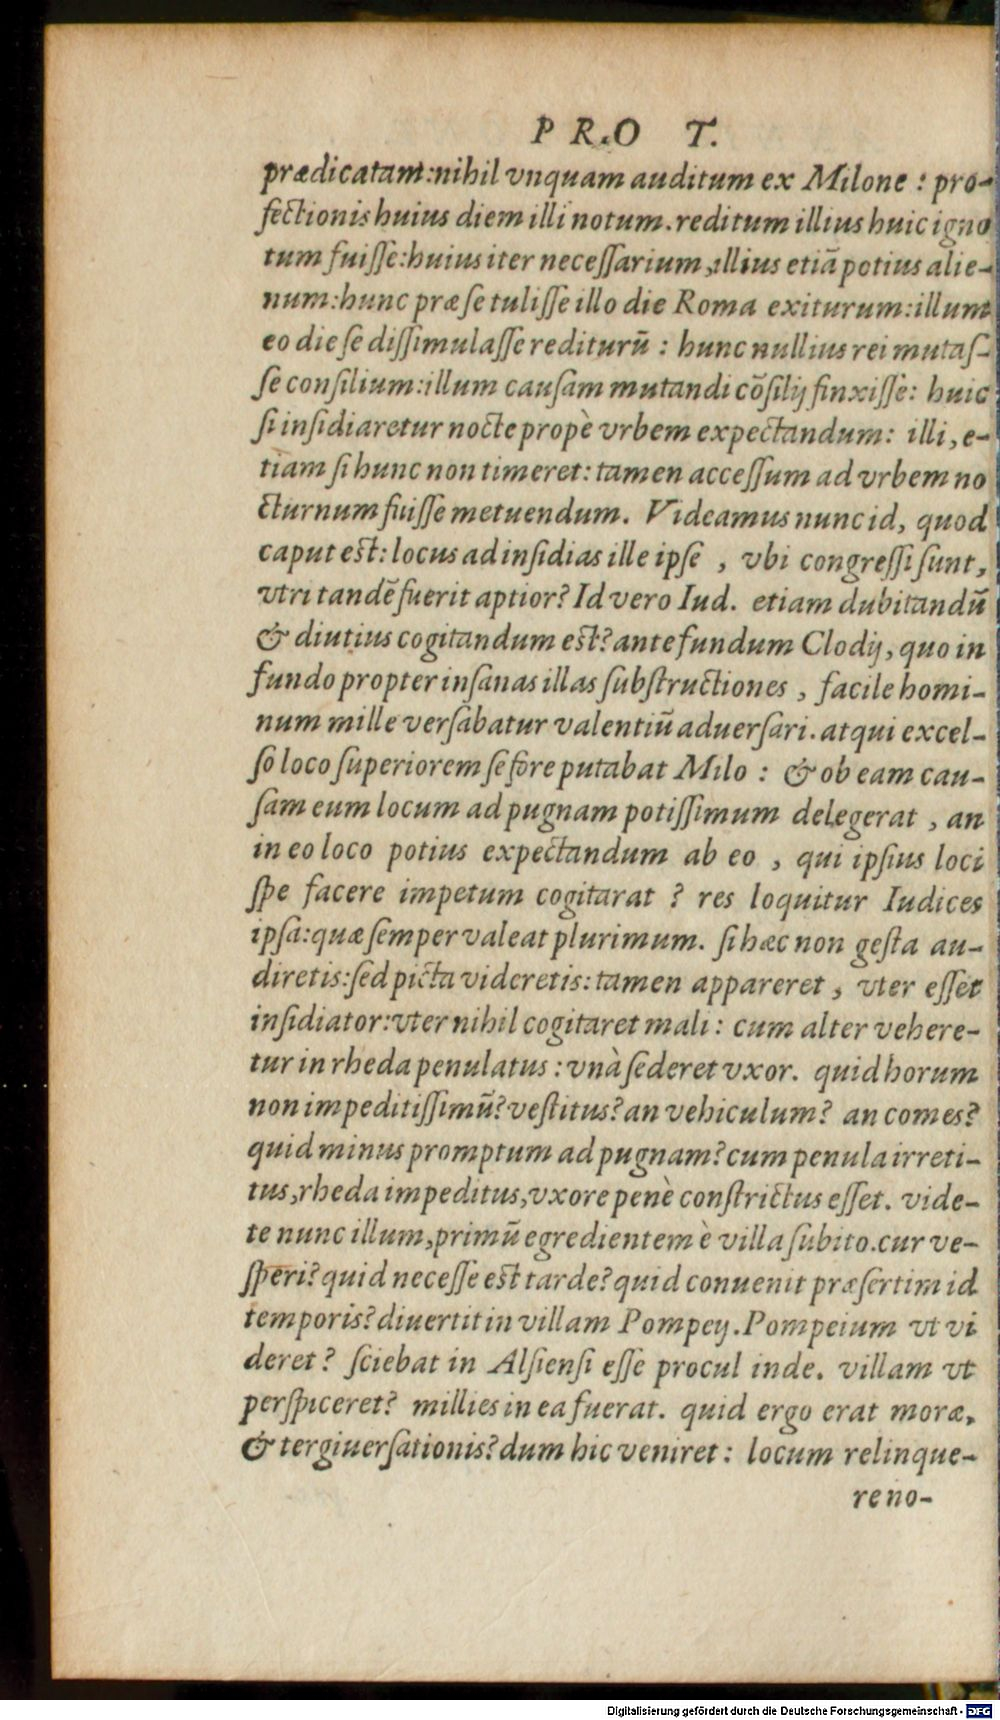 PRO T.
prædicatam:nihil vnquam auditum ex Milone : pro-
fectionis huius diem illi notum. reditum illius huic igno
tum fuiſſe:huius iter neceſſarium,illius etiã potius alie-
num:hunc præ ſe tuliſſe illo die Roma exiturum:illum
eo die ſe diſſimulaſſe rediturũ : hunc nullius rei mutaſ-
ſe conſilium:illum cauſam mutandi cõſilij finxiſſe: huic
ſi inſidiaretur nocte propè vrbem expectandum: illi, e-
tiam ſi hunc non timeret: tamen acceſſum ad vrbem no
cturnum fuiſſe metuendum. Videamus nunc id, quod
caput est: locus ad inſidias ille ipſe , vbi congreſſi ſunt,
vtri tandẽ fuerit aptior? Id vero Iud. etiam dubitandũ
& diutius cogitandum est? ante fundum Clodij, quo in
fundo propter inſanas illas ſubſtructiones , facile homi-
num mille verſabatur valentiũ aduerſari. atqui excel-
ſo loco ſuperiorem ſe fore putabat Milo : & ob eam cau-
ſam eum locum ad pugnam potiſſimum delegerat , an
in eo loco potius expectandum ab eo , qui ipſius loci
ſpe facere impetum cogitarat ? res loquitur Iudices
ipſa:quæ ſemper valeat plurimum. ſi hæc non geſta au-
diretis:ſed picta videretis: tamen appareret , vter eſſet
inſidiator:vter nihil cogitaret mali : cum alter vehere-
tur in rheda penulatus : vnà ſederet vxor. quid horum
non impeditiſſimũ? veſtitus? an vehiculum? an comes?
quid minus promptum ad pugnam? cum penula irreti-
tus,rheda impeditus,vxore penè conſtrictus eſſet. vide-
te nunc illum,primũ egredientem è villa ſubito.cur ve-
ſperi? quid neceſſe est tarde? quid conuenit præſertim id
temporis? diuertit in villam Pompej. Pompeium vt vi
deret? ſciebat in Alſienſi eſſe procul inde. villam vt
perſpiceret? millies in ea fuerat. quid ergo erat moræ,
& tergiuerſationis? dum hic veniret : locum relinque-
re no-
Digitalisierung gefördert durch die Deutsche Forschungsgemeinschaft - DFG